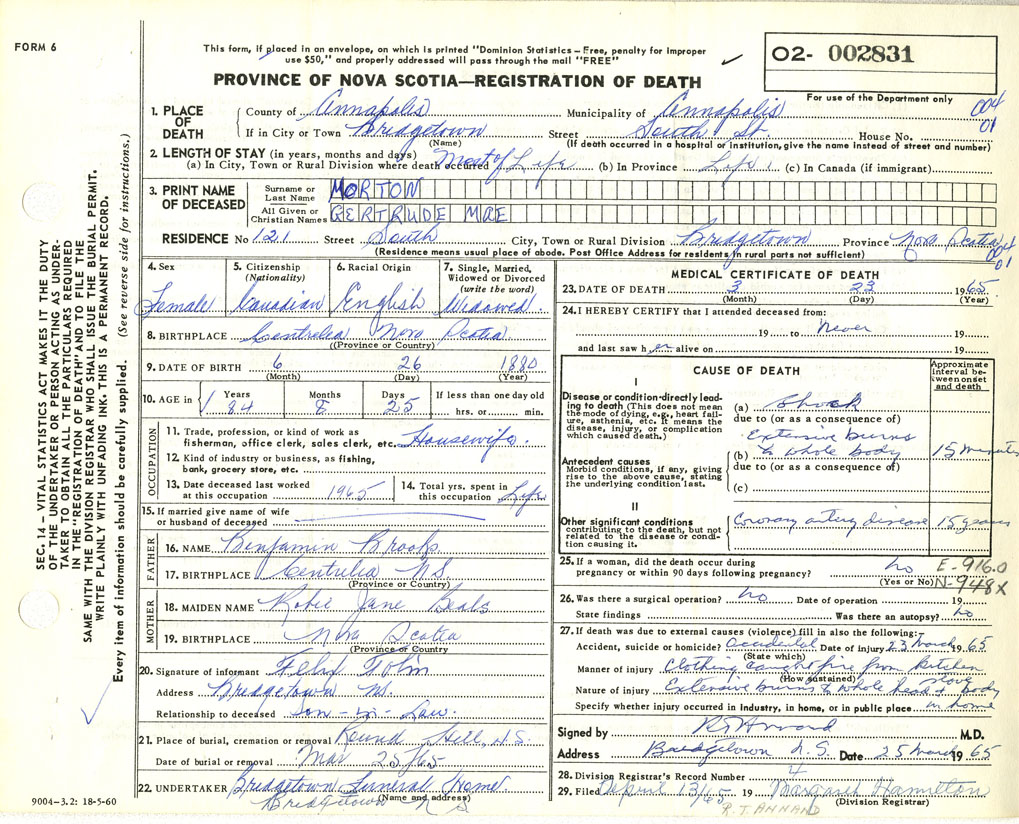 FORM 6
This form, if placed in an envelope, on which is printed "Dominion Statistics – Free, penalty for improper
use $50," and properly addressed will pass through the mail "FREE"
O2- 002831
PROVINCE OF NOVA SCOTIA—REGISTRATION OF DEATH
For use of the Department only
004
01
1. PLACE OF DEATH
County of Annapolis Municipality of Annapolis
If in City or Town Bridgetown Street South St. House No.
(Name) (If death occurred in a hospital or institution, give the name instead of street and number)
2. LENGTH OF STAY (in years, months and days)
(a) In City, Town or Rural Division where death occurred Most of Life (b) In Province Life (c) In Canada (if immigrant)
3. PRINT NAME OF DECEASED
Surname or Last Name MORTON
All Given or Christian Names GERTRUDE MAE
RESIDENCE No 121 Street South City, Town or Rural Division Bridgetown Province Nova Scotia
(Residence means usual place of abode. Post Office Address for residents in rural parts not sufficient)
004
01
4. Sex 5. Citizenship (Nationality) 6. Racial Origin 7. Single, Married, Widowed or Divorced (write the word)
Female Canadian English Widowed
8. BIRTHPLACE Centrelea Nova Scotia
(Province or Country)
9. DATE OF BIRTH 6 26 1880
(Month) (Day) (Year)
10. AGE in Years Months Days If less than one day old
84 8 25 hrs. or min.
OCCUPATION
11. Trade, profession, or kind of work as
fisherman, office clerk, sales clerk, etc. Housewife
12. Kind of industry or business, as fishing,
bank, grocery store, etc.
13. Date deceased last worked at this occupation 1965 14. Total yrs. spent in this occupation Life
15. If married give name of wife
or husband of deceased
FATHER
16. NAME Benjamin Brooks
17. BIRTHPLACE Centrelea N.S.
(Province or Country)
MOTHER
18. MAIDEN NAME Jane Beals
19. BIRTHPLACE Nova Scotia
(Province or Country)
20. Signature of informant
Address Bridgetown N.S.
Relationship to deceased Son-in-Law.
21. Place of burial, cremation or removal Round Hill, N.S.
Date of burial or removal Mar 25/65
22. UNDERTAKER Bridgetown Funeral Home
(Name and address)
Bridgetown N S
MEDICAL CERTIFICATE OF DEATH
23. DATE OF DEATH 3 23 1965
(Month) (Day) (Year)
24. I HEREBY CERTIFY that I attended deceased from:
19 to Never 19
and last saw her alive on 19
CAUSE OF DEATH
Approximate interval between onset and death
I
Disease or condition-directly leading to death (This does not mean the mode of dying, e.g., heart failure, asthenia, etc. It means the disease, injury, or complication which caused death.)
(a) Shock
due to (or as a consequence of)
Extensive burns
Antecedent causes
Morbid conditions, if any, giving rise to the above cause, stating the underlying condition last.
(b) to whole body 15 minutes
due to (or as a consequence of)
(c)
II
Other significant conditions
contributing to the death, but not related to the disease or condition causing it.
Coronary artery disease 15 years
25. If a woman, did the death occur during
pregnancy or within 90 days following pregnancy? no
(Yes or No)
E-916.0
N-948X
26. Was there a surgical operation? No Date of operation 19
State findings Was there an autopsy? no
27. If death was due to external causes (violence) fill in also the following:–
Accident, suicide or homicide? Accidental Date of injury 23 March 1965
(State which)
Manner of injury Clothing caught fire from kitchen stove
(How sustained)
Nature of injury Extensive burns to whole head & body
Specify whether injury occurred in industry, in home, or in public place in home
Signed by M.D.
Address Bridgetown N.S. Date 25 March 1965
28. Division Registrar's Record Number 4
29. Filed April 13/65 19 Margaret Hamilton
(Division Registrar)
R.T. ANNAND
SEC. 14 – VITAL STATISTICS ACT MAKES IT THE DUTY
OF THE UNDERTAKER OR PERSON ACTING AS UNDER-
TAKER TO OBTAIN ALL THE PARTICULARS REQUIRED
IN THE "REGISTRATION OF DEATH" AND TO FILE THE
SAME WITH THE DIVISION REGISTRAR WHO SHALL ISSUE THE BURIAL PERMIT.
WRITE PLAINLY WITH UNFADING INK. THIS IS A PERMANENT RECORD.
Every item of information should be carefully supplied. (See reverse side for instructions.)
9004–3.2: 18-5-60